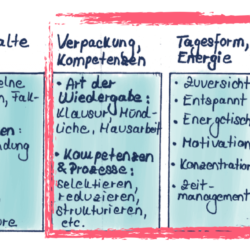 alte
Verpackung,
Kompetenzen
Tagesform,
Energie
elne
n, Fak-
en:
ndung
ore
• Art der
Wiedergabe:
Klausur, Münd-
liche, Hausarbeit
• Kompetenzen
& Prozesse:
selektieren,
reduzieren,
strukturieren,
etc.
• Zuversicht
• Entspannt
• Energetisch
• Motivation
• Konzentration
• Zeit-
management